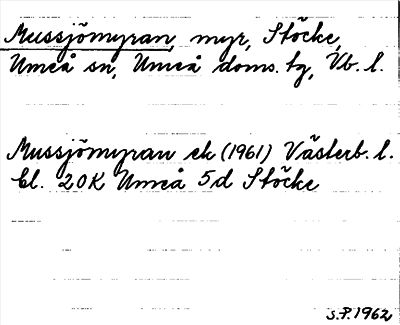 Mussjömyran, myr, Stöcke,
Umeå sn, Umeå doms. tg, Vb. l.
Mussjömyran ek (1961) Västerb. l.
bl. 20K Umeå 5d Stöcke
S.P. 1962